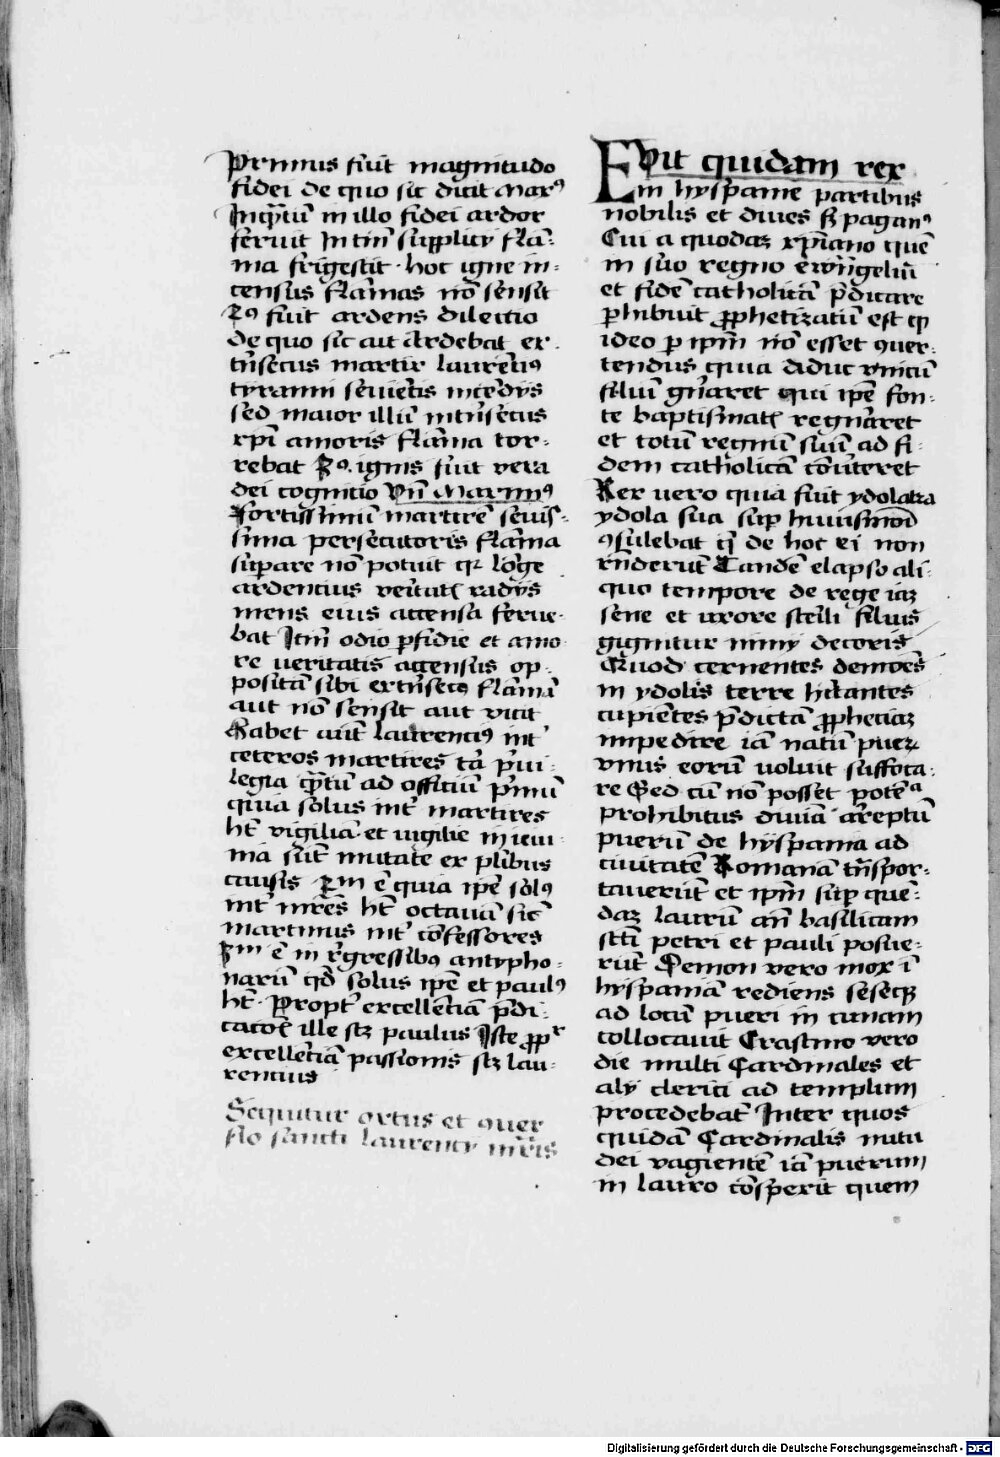 Primus fuit magnitudo
fidei de quo sic dicit Marꝰ
Inqͣtū in illo fidei ardor
feruit Intm̄ supplicij flā-
ma frigescit · hoc igne in-
census flāmas nō sensit
2ꝰ fuit ardens dilectio
de quo sic ait Ardebat ex-
tᷓnsecus martir laurētiꝰ
tyranni seuiētis incēdijs
sed maior illū intᷓnsecus
xpī amoris flāma tor-
rebat 3ꝰ ignis fuit vera
dei cognitio Vn̄ Maximꝰ
fortissimū martirē seuis-
sima persecutoris flāma
suꝑare nō potuit qꝛ lōge
ardencius veītatꝭ radijs
mens eius accensa ferue-
bat Itm̄ odio ꝑfidie et amo-
re veritatis accensus op-
positā sibi extᷓnsecꝰ flāmā
aut nō sensit aut vicit
Habet aūt laurenciꝰ int̄
ceteros martires tͣ p̄ui-
legia qͣntū ad officiū Pͥmū
quia solus int̄ martires
ht̄ vigiliā et vigilie in ieiu-
nia sūt mutate ex pluͥbus
causis 2m ē quia ipē solꝰ
int̄ mr̄es ht̄ octauā sic̄
martinus int̄ cōfessores
3m ē in rͤgressibꝰ antypho-
narū qd̄ solus ipē et paulꝰ
ht̄ · Propt̄ excellētiā p̄di-
catōis ille scꝫ paulus Iste ꝓpꝑ
excellētiā passionis scꝫ lau-
rencius
Sequitur ortus et ꝯuer
sio sancti laurencij mr̄is
Fuit quidam rex
in hyspanie partibus
nobilis et diues sꝫ paganꝰ
Cui a quodaꝫ xpīano quē
in suo regno ewāngeliū
et fidē catholicā p̄dicare
ꝓhibuit ꝓphetizatū est qꝫ
ideo ꝑ ipm̄ nō esset ꝯuer-
tendus quia adhuc vnicū
filiū gn̄aret qui ipē fon-
te baptismatꝭ regn̄aret
et totū regnū suū ad fi-
dem catholicā cōuͤteret
Rex vero quia fuit ydolatra
ydola sua suꝑ huiusmōi
ꝯsulebat qͥ de hoc ei non
rn̄derūt Tandē elapso ali-
quo tempore de rege iaꝫ
sene et vxore sterili filius
gignitur nimij decoris
Quod cernentes demōes
in ydolis terre hītantes
cupiētes p̄dictā ꝓpheciaꝫ
impedire iā natū pueꝝ
vnus eorū voluit suffoca-
re Sed cū nō posset potēᵃ
prohibitus diuīa arͤptū
puerū de hyspania ad
ciuitatē Romanā tͣnspor-
tauerūt et ipm̄ suꝑ quē-
daꝫ laurū an̄ basilicam
scti petri et pauli posue-
rūt Demon vero mox ī
hyspaniā rediens seseqꝫ
ad locū pueri in cunam
collocauit Crastino vero
die multi Cardinales et
alij clerici ad templum
procedebāt Inter quos
quidā Cardinalis nutu
dei vagientē iā puerum
in lauro cōsꝑerit quem
Digitalisierung gefördert durch die Deutsche Forschungsgemeinschaft - DFG